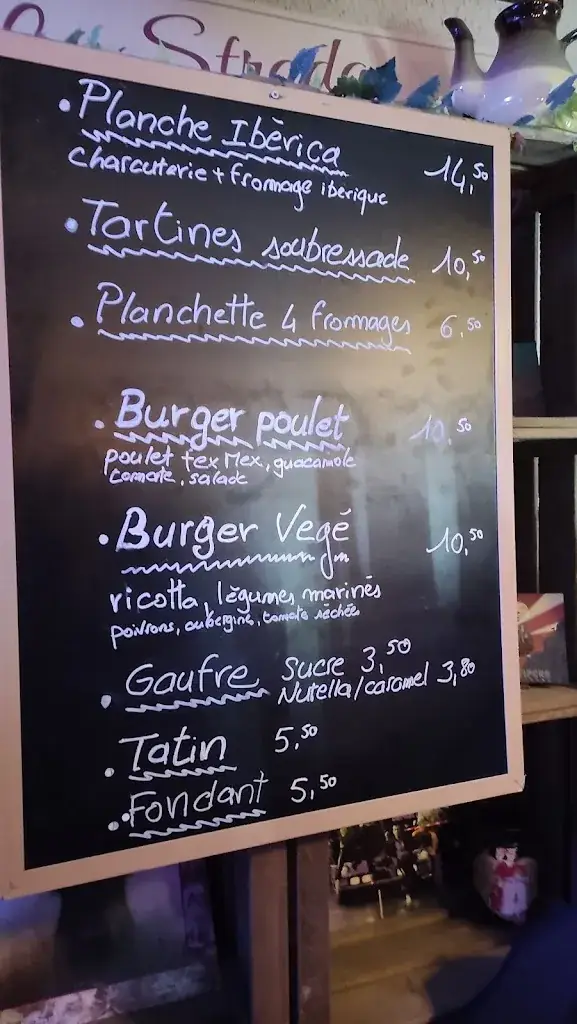 Strada
• Planche Ibèrica 14,50
charcuterie + fromage ibèrique
• Tartines soubressade 10,50
• Planchette 4 fromages 6,50
• Burger poulet 10,50
poulet tex Mex, guacamole
tomate, salade
• Burger Vegé 10,50
ricotta, légumes marinés
poivrons, aubergine, tomate séchée
• Gaufre sucre 3,50
Nutella/caramel 3,80
• Tatin 5,50
• Fondant 5,50